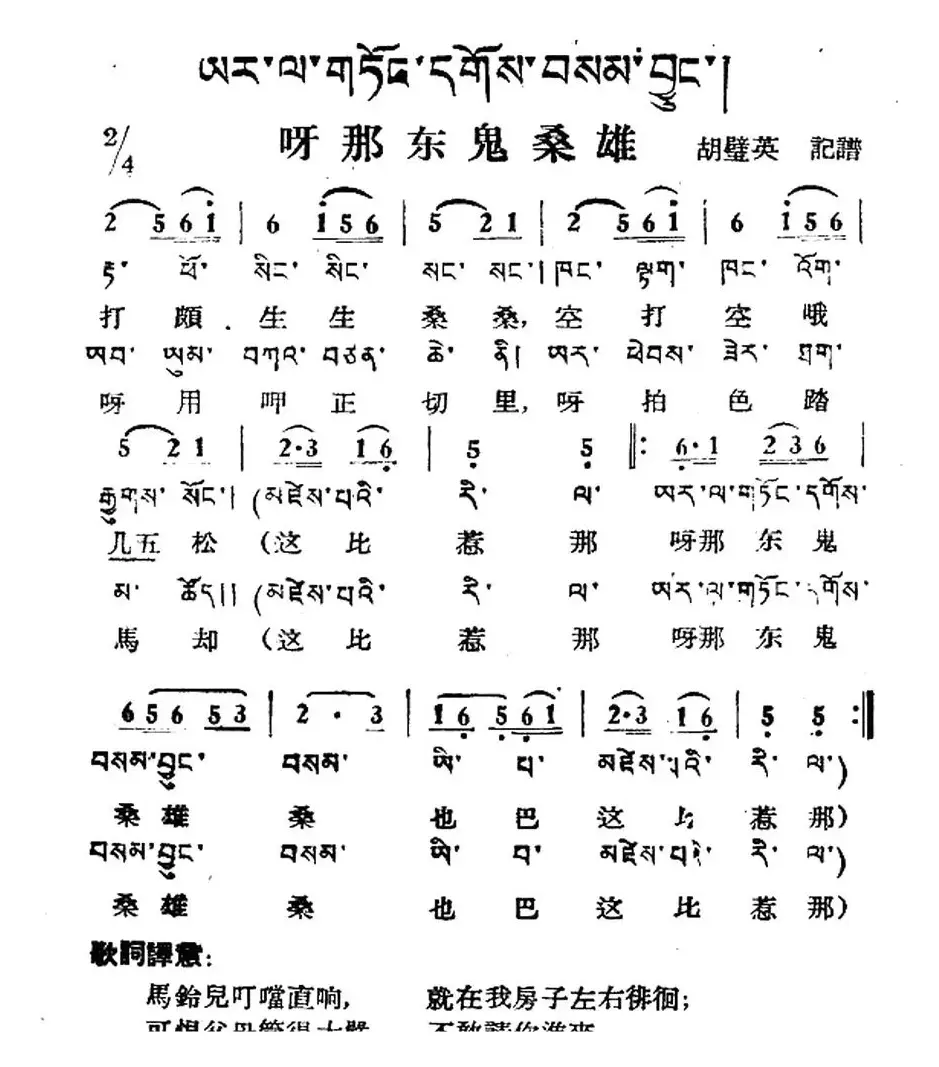 ཨར་ལ་གཏོང་དགོས་བསམ་བྱུང་།
2/4 呀那东鬼桑雄 胡璧英 記譜
2 5 6 1 | 6 1 5 6 | 5 2 1 | 2 5 6 1 | 6 1 5 6 |
རྟ་ ཕོ་ སིང་ སིང་ སང་ སང་། ཁང་ ལྟག་ ཁང་ འོག་
打 頗 生 生 桑 桑, 空 打 空 哦
ཨབ་ ཡུམ་ བཀའ་ བཙན་ ཆེ་ ནི། ཨར་ ཕེབས་ ཟེར་ ཐག་
呀 用 呷 正 切 里, 呀 拍 色 踏
5 2 1 | 2·3 1 6 | 5 5 ‖: 6·1 2 3 6 |
རྒྱུགས་ སོང་། (མཛེས་པའི་ རི་ ལ་ ཨར་ལ་གཏོང་དགོས་
几五 松 (这 比 惹 那 呀那 东 鬼
མ་ ཚོད།། (མཛེས་པའི་ རི་ ལ་ ཨར་ལ་གཏོང་དགོས་
馬 却 (这 比 惹 那 呀那 东 鬼
6 5 6 5 3 | 2 · 3 | 1 6 5 6 1 | 2·3 1 6 | 5 5 :‖
བསམ་བྱུང་ བསམ་ ཨི་ པ་ མཛེས་པའི་ རི་ ལ་)
桑 雄 桑 也 巴 这 比 惹 那)
བསམ་བྱུང་ བསམ་ ཨི་ པ་ མཛེས་པའི་ རི་ ལ་)
桑 雄 桑 也 巴 这 比 惹 那)
歌詞譯意:
馬鈴兒叮噹直响, 就在我房子左右徘徊;